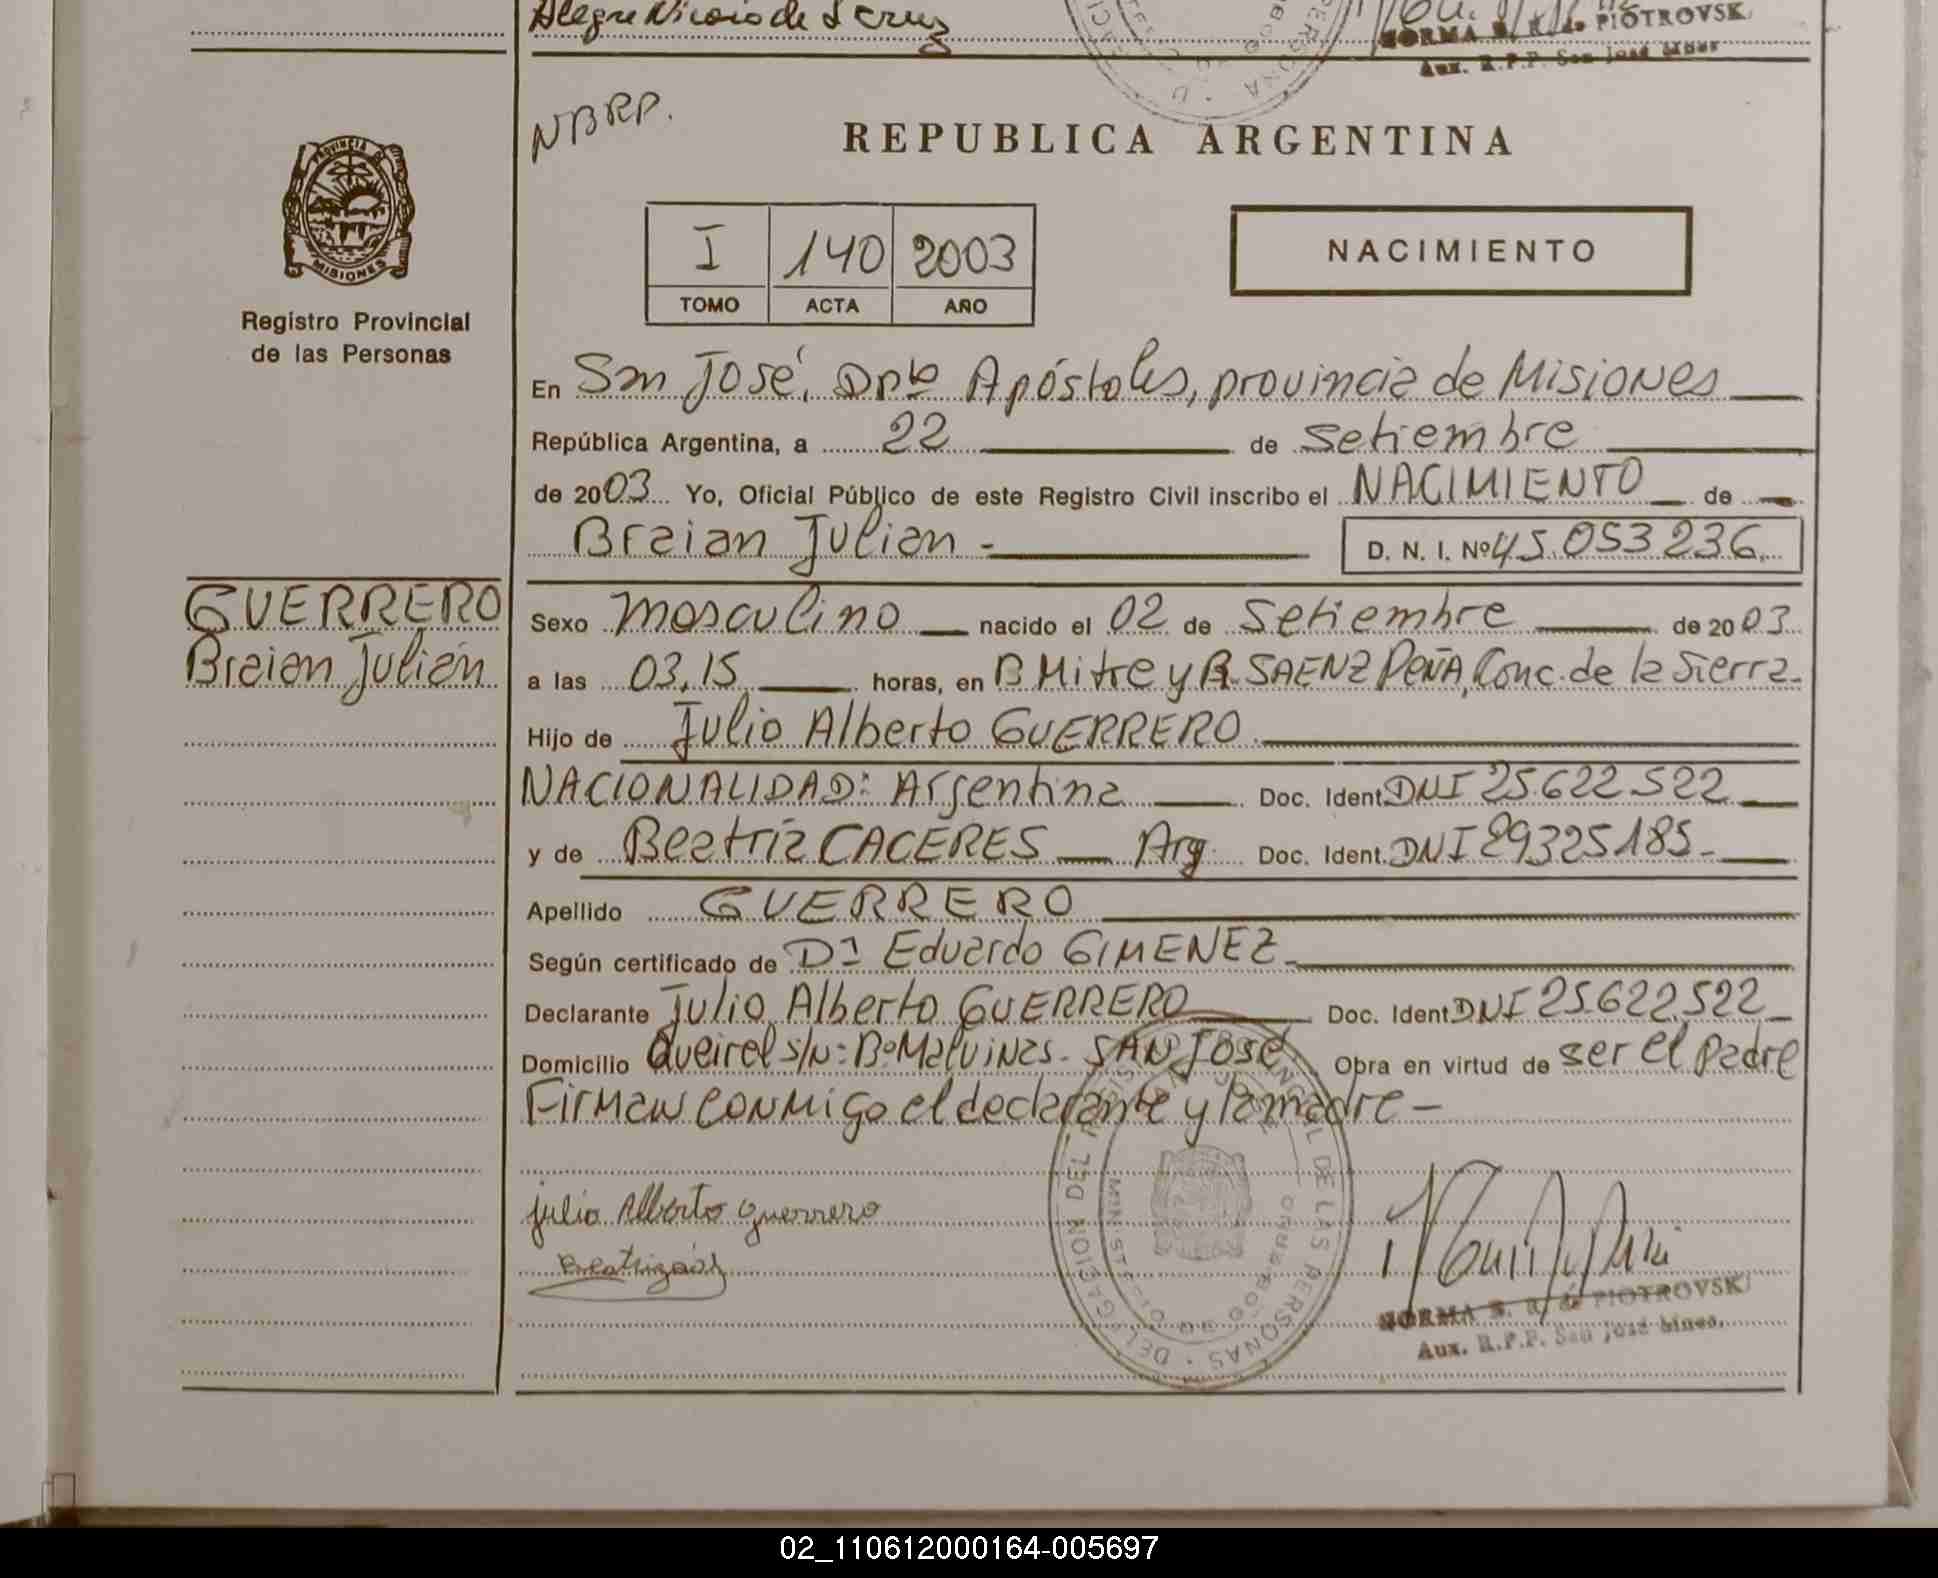 Alegre Nicolasa de S cruz
NORMA S. R. de PIOTROVSKI
Aux. R.P.P. San José Mnes.
NBRP.
REPUBLICA ARGENTINA
PROVINCIA D
MISIONES
Registro Provincial
de las Personas
I 140 2003
TOMO ACTA AÑO
NACIMIENTO
En San José, Dpto Apóstoles, provincia de Misiones
República Argentina, a 22 de Setiembre
de 2003 Yo, Oficial Público de este Registro Civil inscribo el NACIMIENTO de
Braian Julian - D. N. I. Nº 45.053236
GUERRERO
Braian Julián
Sexo masculino nacido el 02 de Setiembre de 2003
a las 03,15 horas, en B Mitre y R. SAENZ PEÑA, Conc. de la Sierra.
Hijo de Julio Alberto GUERRERO
NACIONALIDAD: Argentina Doc. Ident. DNI 25622522
y de Beatriz CACERES Arg Doc. Ident. DNI 29325185
Apellido GUERRERO
Según certificado de Dr Eduardo GIMENEZ
Declarante Julio Alberto GUERRERO Doc. Ident DNI 25.622.522
Domicilio Queirel s/N: Bº Malvinas. SAN José Obra en virtud de ser el padre
Firman conmigo el declarante y la madre -
julio Alberto guerrero
NORMA S. R. de PIOTROVSKI
Aux. R.P.P. San José Mnes.
DELEGACION DEL REGISTRO PROVINCIAL DE LAS PERSONAS
02_110612000164-005697